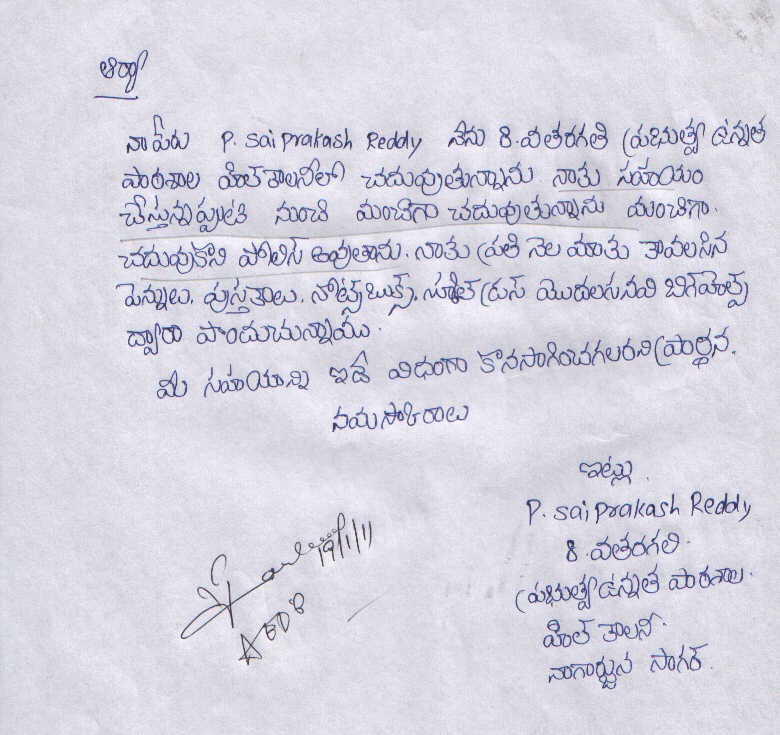 ఆర్యా
నా పేరు P. Sai Prakash Reddy నేను 8.వతరగతి ప్రభుత్వ ఉన్నత
పాఠశాల హిల్ కాలనీలో చదువుతున్నాను నాకు సహాయం
చేస్తున్నప్పటి నుంచి మంచిగా చదువుతున్నాను మంచిగా.
చదువుకొని పోలిస్ అవుతాను. నాకు ప్రతి నెల మాకు కావలసిన
పెన్నులు. పుస్తకాలు. నోట్సుబుక్స్. స్కూల్ డ్రస్ మొదలసనవి బిగ్‌హెల్ప్
ద్వారా పొందుచున్నాము.
మీ సహయాన్ని ఇదే విధంగా కొనసాగించగలరని ప్రార్థన.
నమస్కారాలు
ఇట్లు.
P. Sai Prakash Reddy
8. వతరగతి.
ప్రభుత్వ ఉన్నత పాఠశాల.
హిల్ కాలనీ.
నాగార్జున సాగర్.
19/1/11